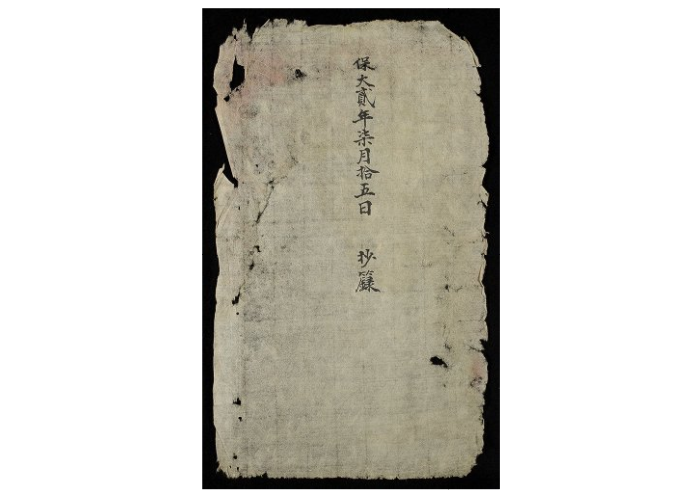 保大貳年柒月拾五日　抄籙